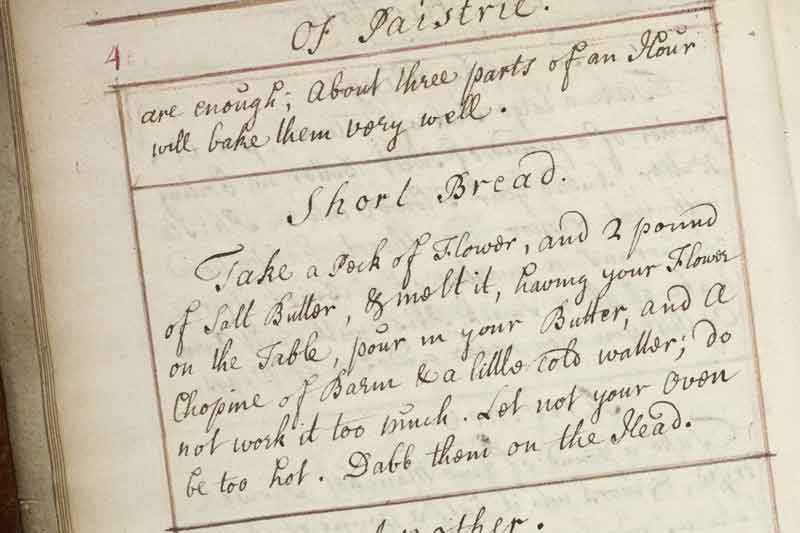 4
Of Paistrie.
are enough; About three parts of an Hour
will bake them very well.
Short Bread.
Take a Peck of Flower, and 2 pound
of Salt Butter, & melt it, having your Flower
on the Table, pour in your Butter, and A
Chopine of Barm & a little cold watter; do
not work it too much. Let not your Oven
be too hot. Dabb them on the Head.
Another.